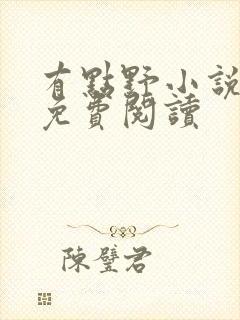 有點野小說
免費閱讀
陳璧君